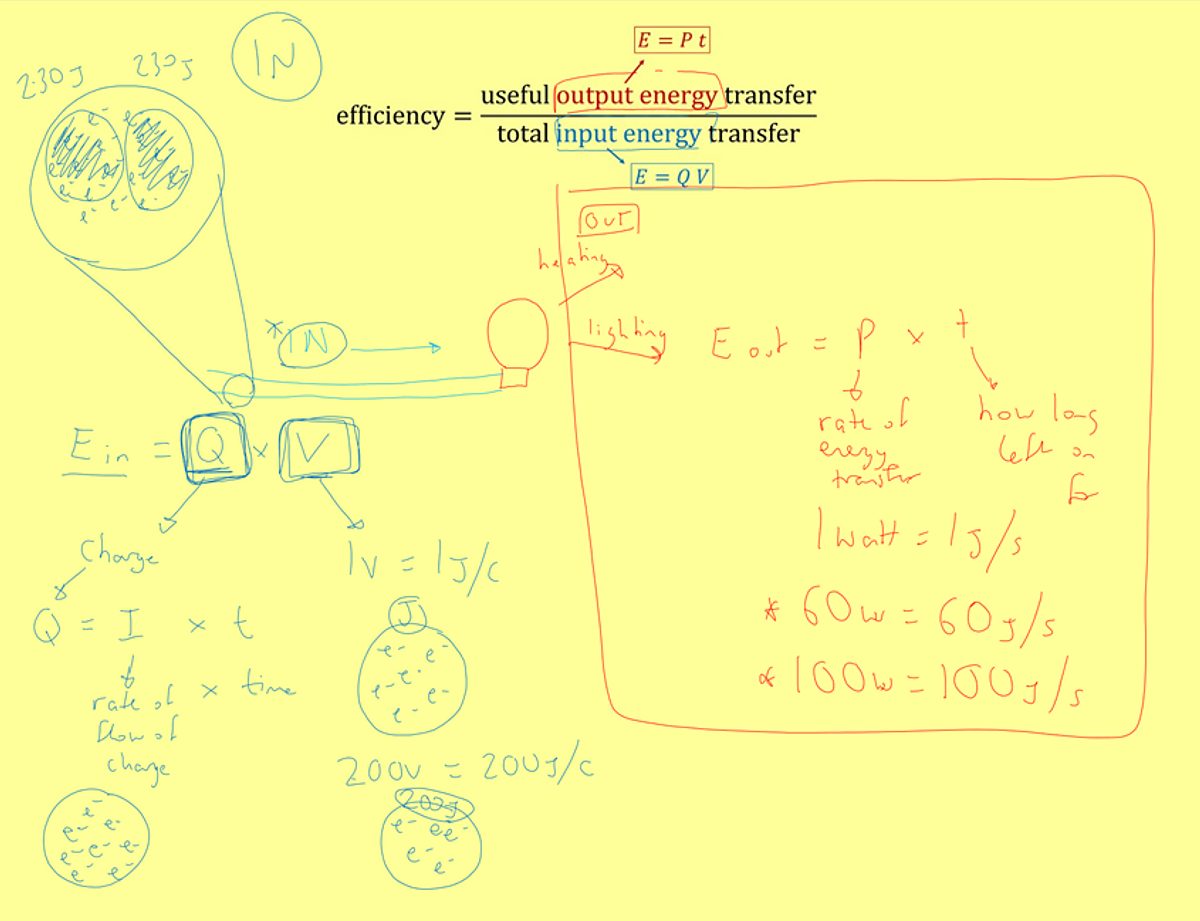 E = P t
efficiency = useful output energy transfer
total input energy transfer
E = Q V
230J 230J
IN
e⁻ e⁻ e⁻ e⁻ e⁻ e⁻
OUT
heating
lighting
* IN
E out = P × t
rate of energy transfer
how long left on for
1 watt = 1 J/s
* 60w = 60J/s
* 100w = 100J/s
E in = Q × V
Charge
Q = I × t
rate of flow of charge × time
e⁻ e⁻ e⁻ e⁻ e⁻ e⁻ e⁻ e⁻
1v = 1J/c
J
e⁻ e⁻ e⁻ e⁻ e⁻ e⁻ e⁻ e⁻
200v = 200J/c
200J
e⁻ e e⁻ e⁻ e⁻